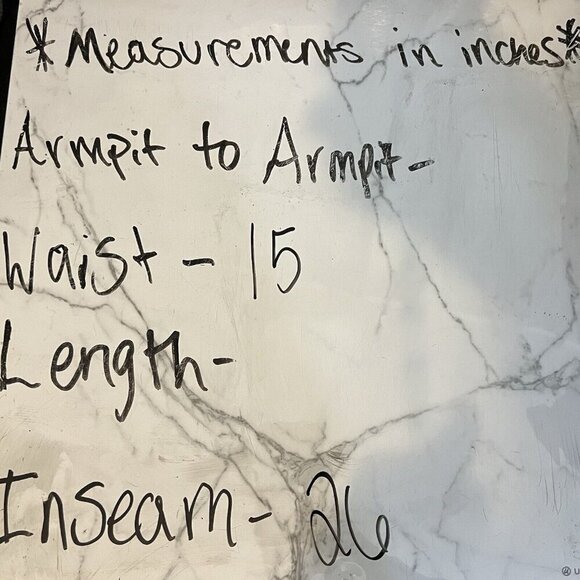 *Measurements in inches*
Armpit to Armpit-
Waist - 15
Length-
Inseam- 26